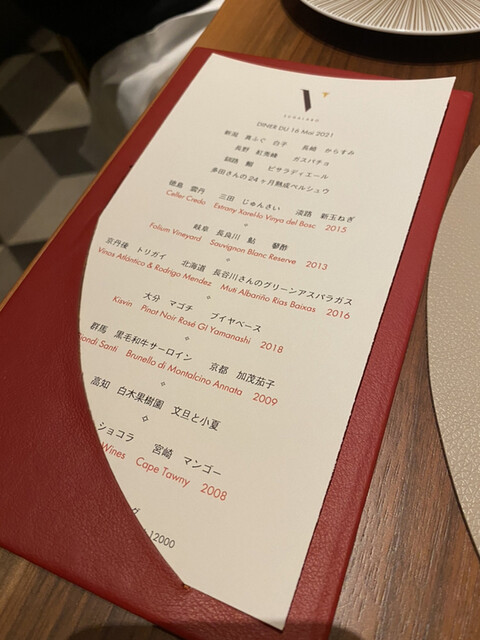 V
DINER DU 16 Mai 2021
新潟 真ふぐ 白子 長崎 からすみ
長野 虹鱒 ガスパチョ
釧路 鰯 ピサラディエール
多田さんの24ヶ月熟成ペルシュウ
徳島 雲丹 三田 じゅんさい 淡路 新玉ねぎ
Celler Credo Estrany Xarel·lo Vinya del Bosc 2015
岐阜 長良川 鮎 蓼酢
Folium Vineyard Sauvignon Blanc Reserve 2013
京丹後 トリガイ 北海道 長谷川さんのグリーンアスパラガス
Vinos Atlántico & Rodrigo Mendez Muti Albariño Rias Baixas 2016
大分 マゴチ ブイヤベース
Kisvin Pinot Noir Rosé GI Yamanashi 2018
群馬 黒毛和牛サーロイン 京都 加茂茄子
iondi Santi Brunello di Montalcino Annata 2009
高知 白木果樹園 文旦と小夏
ショコラ 宮崎 マンゴー
Wines Cape Tawny 2008
グ
12000